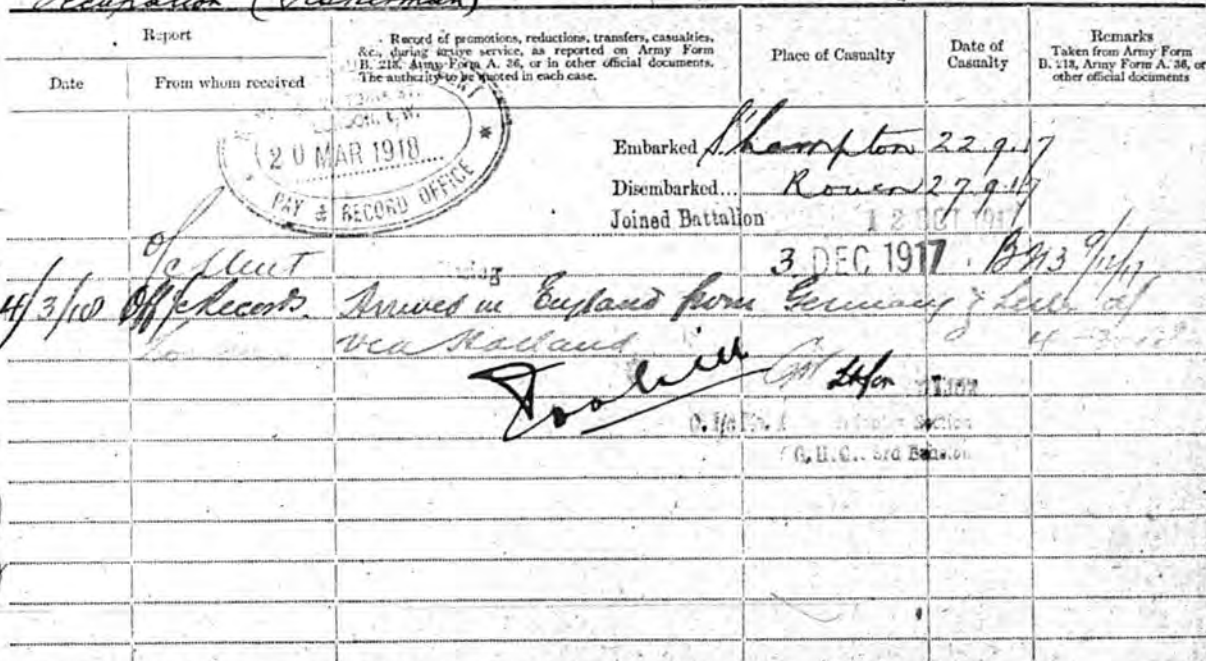 Occupation (Fisherman)
Report
Record of promotions, reductions, transfers, casualties,
&c., during active service, as reported on Army Form
B. 213, Army Form A. 36, or in other official documents.
The authority to be quoted in each case.
Place of Casualty
Date of
Casualty
Remarks
Taken from Army Form
B. 213, Army Form A. 36, or
other official documents
Date
From whom received
20 MAR 1918
PAY & RECORD OFFICE
Embarked S'hampton 22.9.17
Disembarked... Rouen 27.9.17
Joined Battalion 12 OCT 1917
3 DEC 1917 B213
4/3/18 Off i/c Records. Arrived in England from Germany
via Holland
Section
3rd